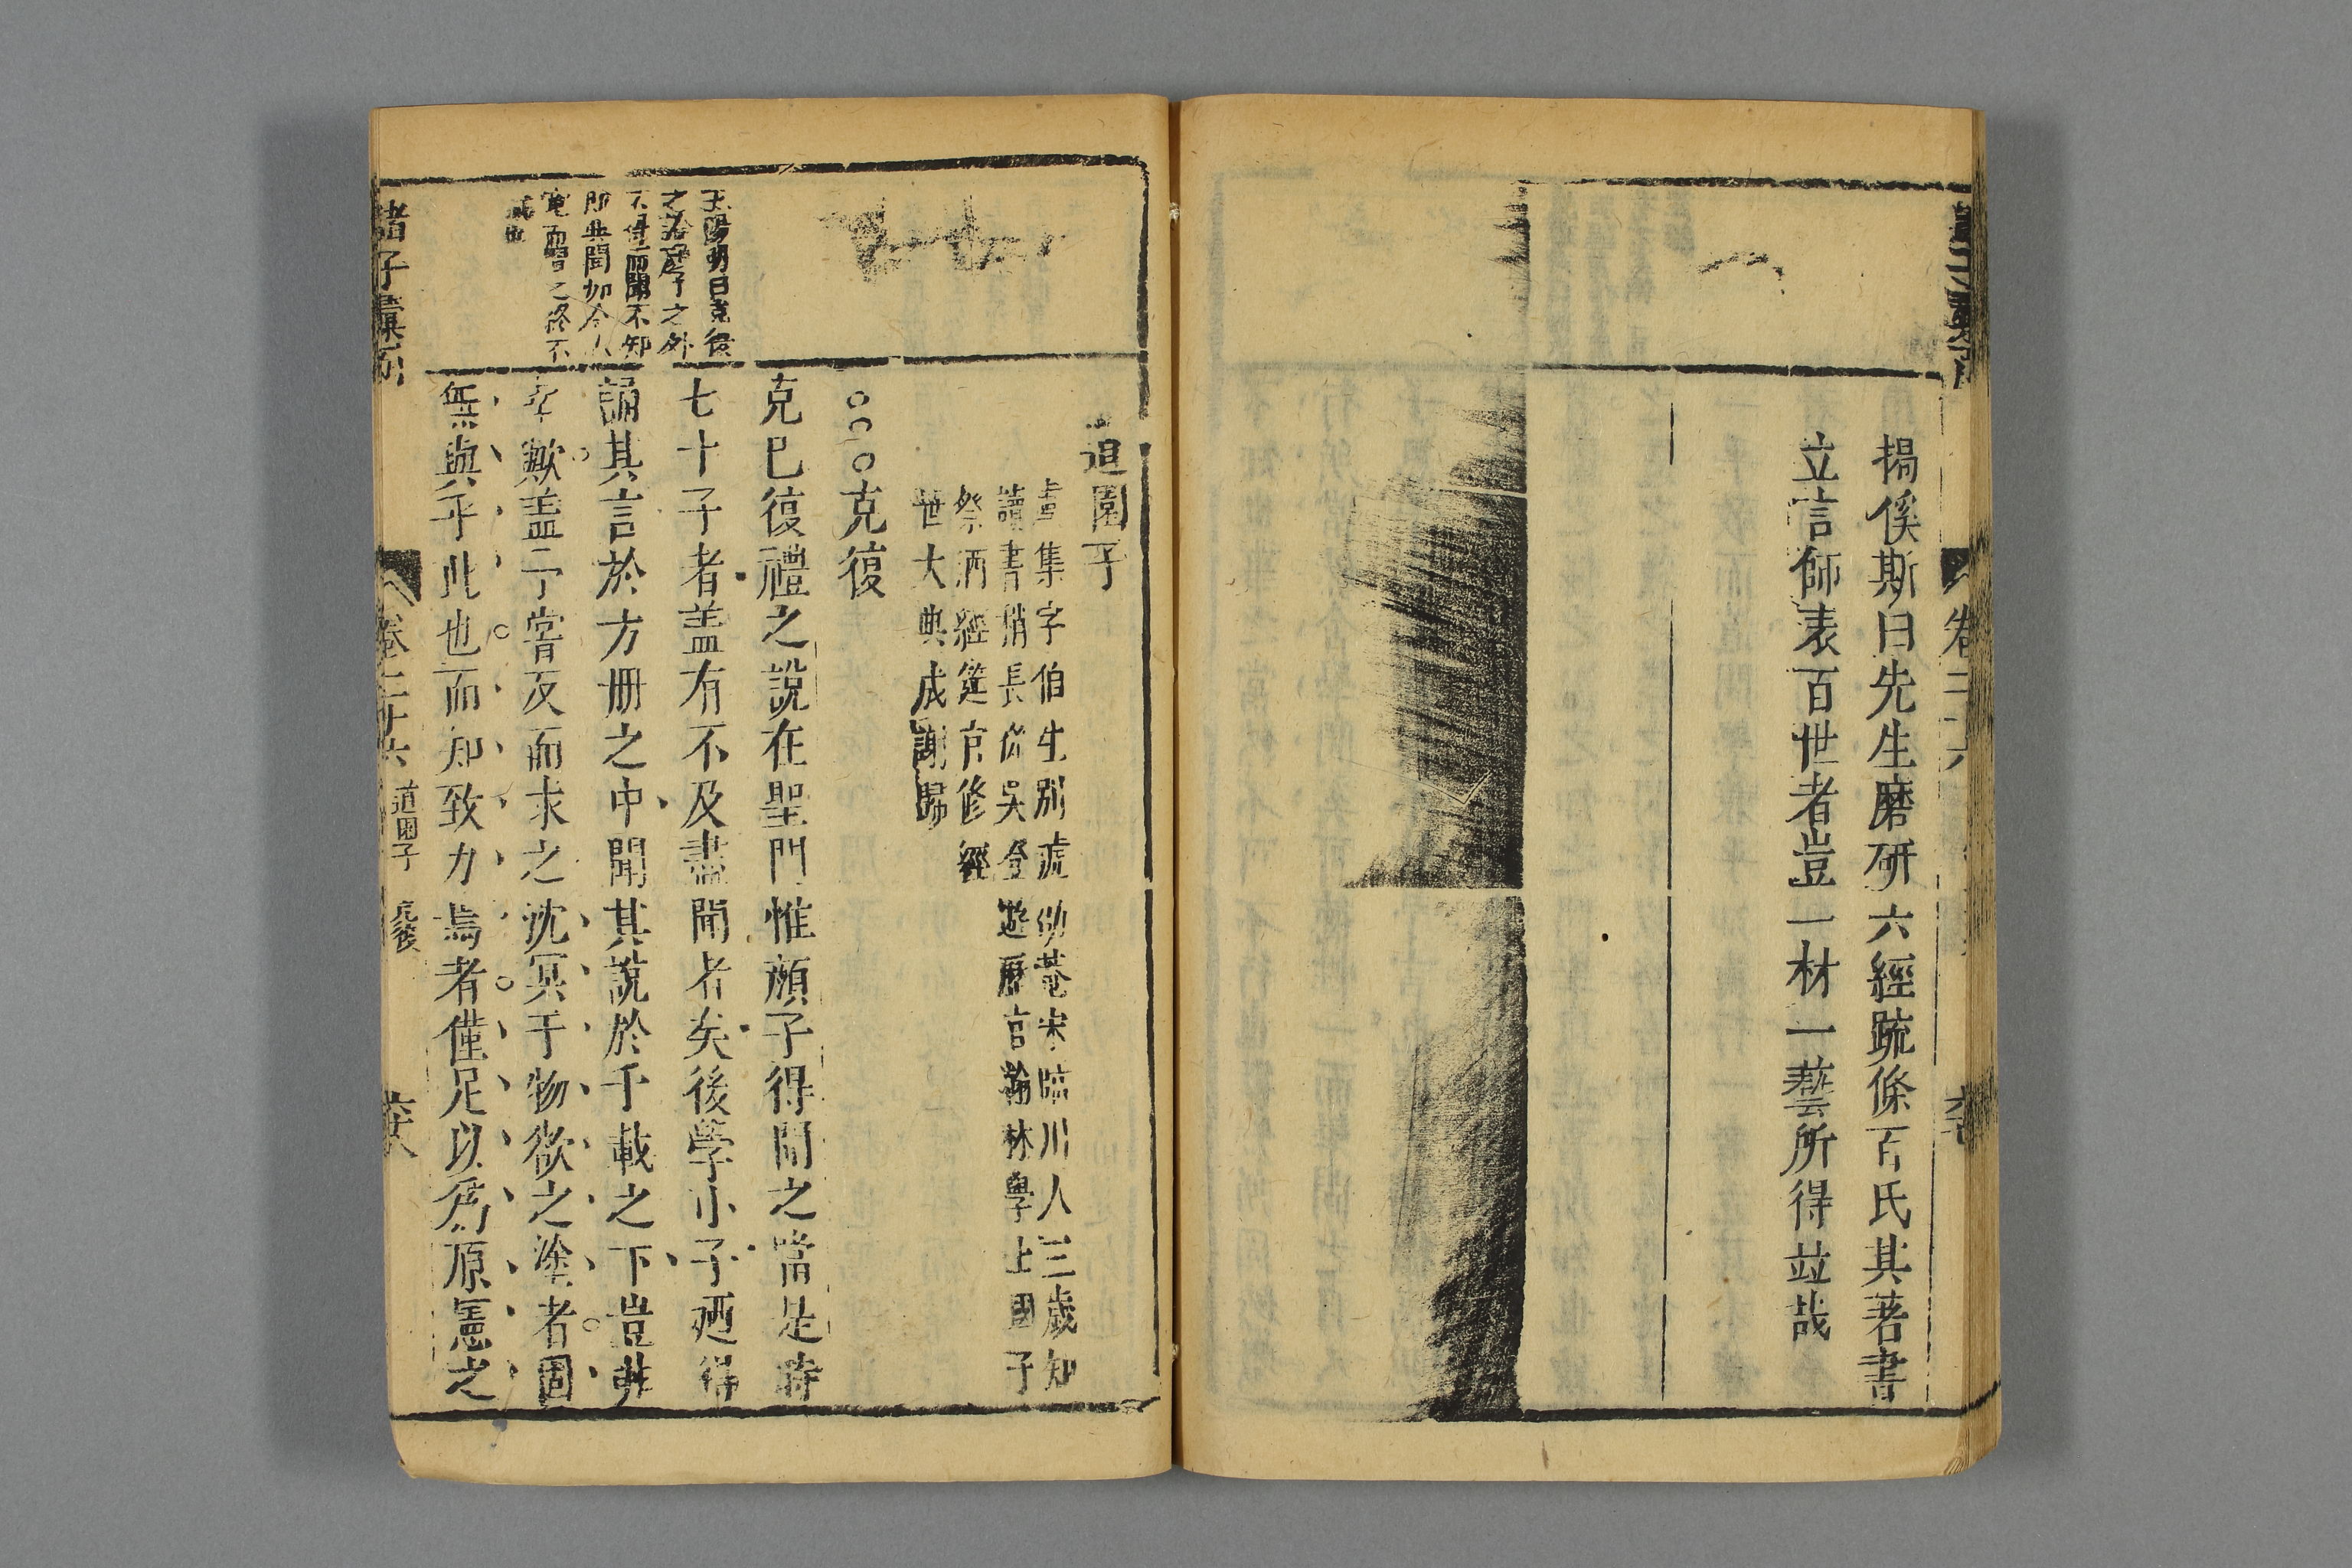 揭傒斯曰先生磨研六經疏條百氏其著書
立言師表百世者豈一材一藝所得竝哉
道園子
虞集字伯生別號邵菴宋臨川人三歲知
讀書稍長從吳登遊歷官翰林學士國子
祭酒經筵官修經
世大典成謝歸
克復
克己復禮之說在聖門惟顏子得聞之當是時
七十子者盖有不及盡聞者矣後學小子廼得
誦其言於方冊之中聞其說於千載之下豈非
幸歟盖予嘗反而求之沈冥于物欲之塗者固
無與乎此也而知致力焉者僅足以爲原憲之
王陽明曰克復
之說顏子之外
不得而聞不知
即共聞如今人
童而習之終不
諸子彙函
卷二十六
道園子
克復
卷二十六